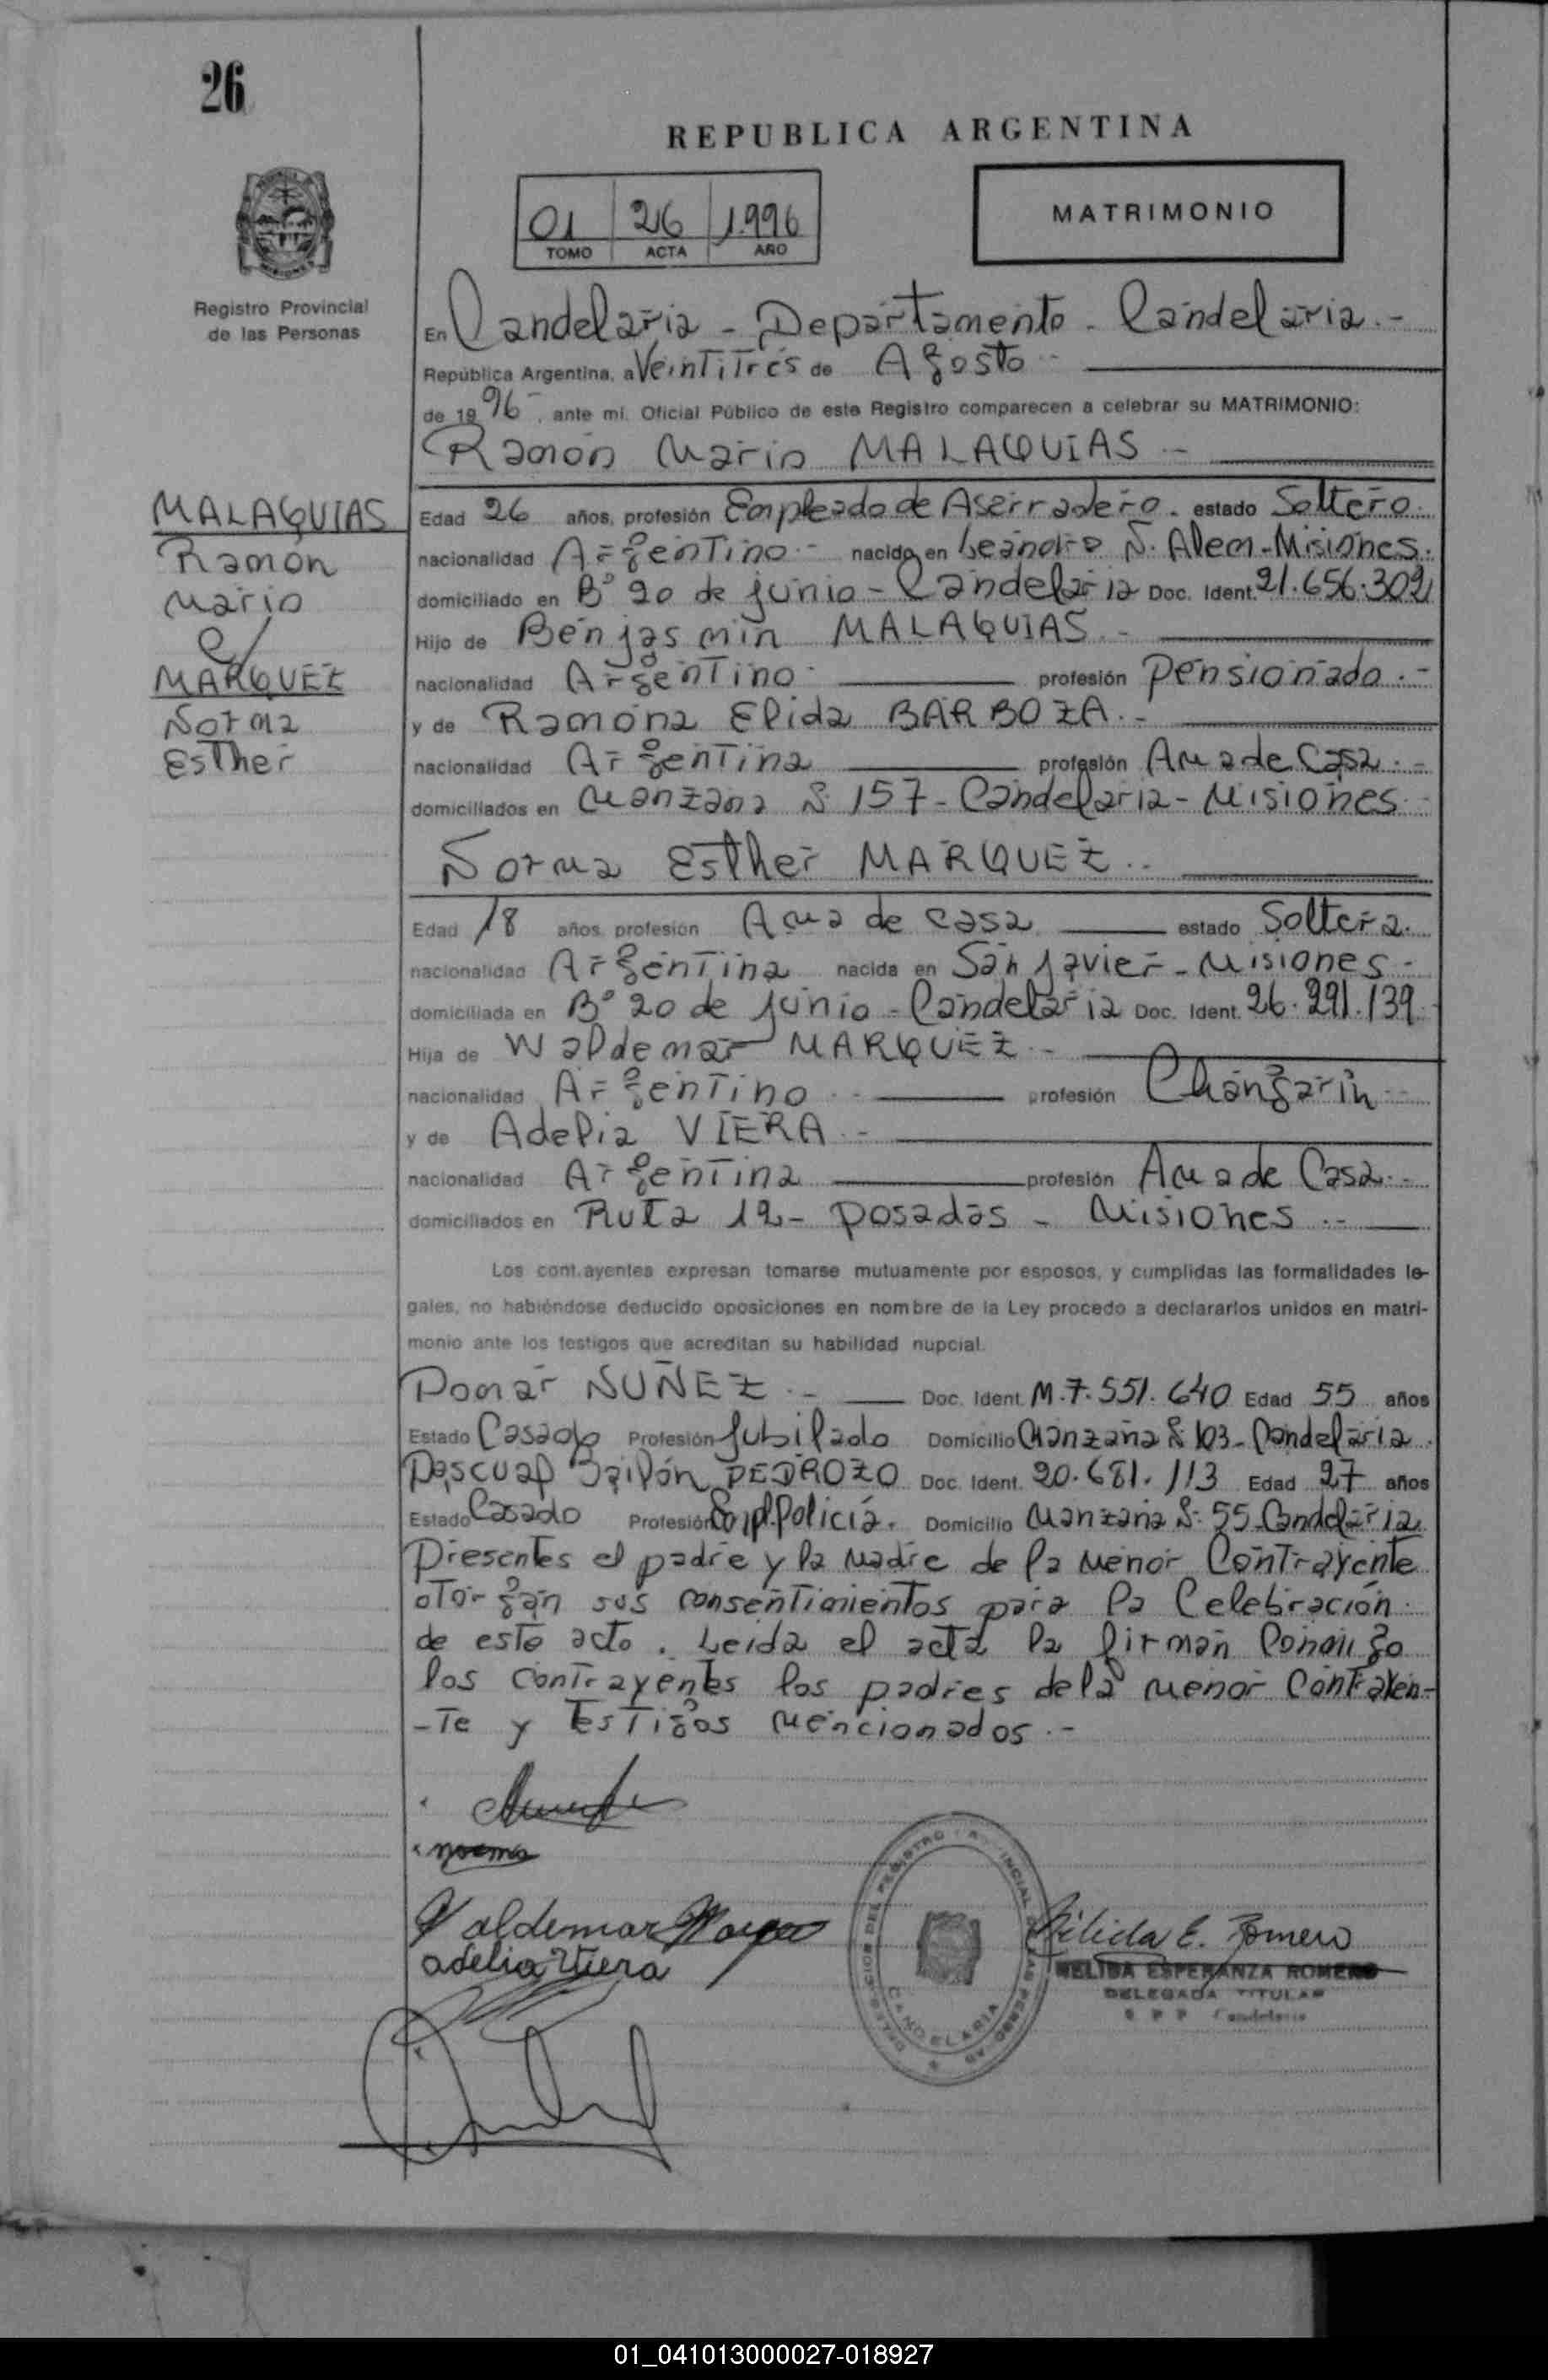 26
REPUBLICA ARGENTINA
01 26 1.996
TOMO ACTA AÑO
MATRIMONIO
Registro Provincial
de las Personas
En Candelaria - Departamento - Candelaria.-
República Argentina, a Veintitrés de Agosto
de 1996, ante mi, Oficial Público de este Registro comparecen a celebrar su MATRIMONIO:
Ramón Mario MALAQUIAS
MALAQUIAS
Ramón
Mario
c/
MARQUEZ
Norma
Esther
Edad 26 años, profesión Empleado de Aserradero. estado Soltero.
nacionalidad Argentino.- nacido en Leandro N. Alem-Misiones.
domiciliado en Bº 20 de junio - Candelaria Doc. Ident. 21.656.302
Hijo de Benjasmin MALAQUIAS.-
nacionalidad Argentino profesión Pensionado.-
y de Ramona Elida BARBOZA.-
nacionalidad Argentina profesión Ama de Casa.-
domiciliados en Manzana S. 157 - Candelaria - Misiones
Norma Esther MARQUEZ..
Edad 18 años, profesión Ama de casa estado Soltera.
nacionalidad Argentina nacida en San Javier - Misiones-
domiciliada en Bº 20 de junio - Candelaria Doc. Ident. 26.291.139
Hija de Waldemar MARQUEZ.-
nacionalidad Argentino profesión Changarín
y de Adelia VIERA.-
nacionalidad Argentina profesión Ama de Casa.-
domiciliados en Ruta 12 - Posadas - Misiones.-
Los cont.ayentes expresan tomarse mutuamente por esposos, y cumplidas las formalidades le-
gales, no habiéndose deducido oposiciones en nombre de la Ley procedo a declararlos unidos en matri-
monio ante los testigos que acreditan su habilidad nupcial.
NUÑEZ.- Doc. Ident. M.7.551.640 Edad 55 años
Estado Casado Profesión Jubilado Domicilio Manzana S 103 - Candelaria.
Pascual Bailón PEDROZO Doc. Ident. 20.681.113 Edad 27 años
Estado Casado Profesión Empl. Policía. Domicilio Manzana S. 55 - Candelaria
Presentes el padre y la Madre de la menor Contrayente
otorgan sus consentimientos para la Celebración.
de este acto. Leida el acta la firman Conmigo
los contrayentes los padres de la menor Contrayen-
-te y Testigos mencionados.-
norma
Valdemar Marques
adelia Viera
Nélida E. Romero
NELIDA ESPERANZA ROMERO
DELEGADA TITULAR
R P P Candelaria
CANDELARIA
01_041013000027-018927